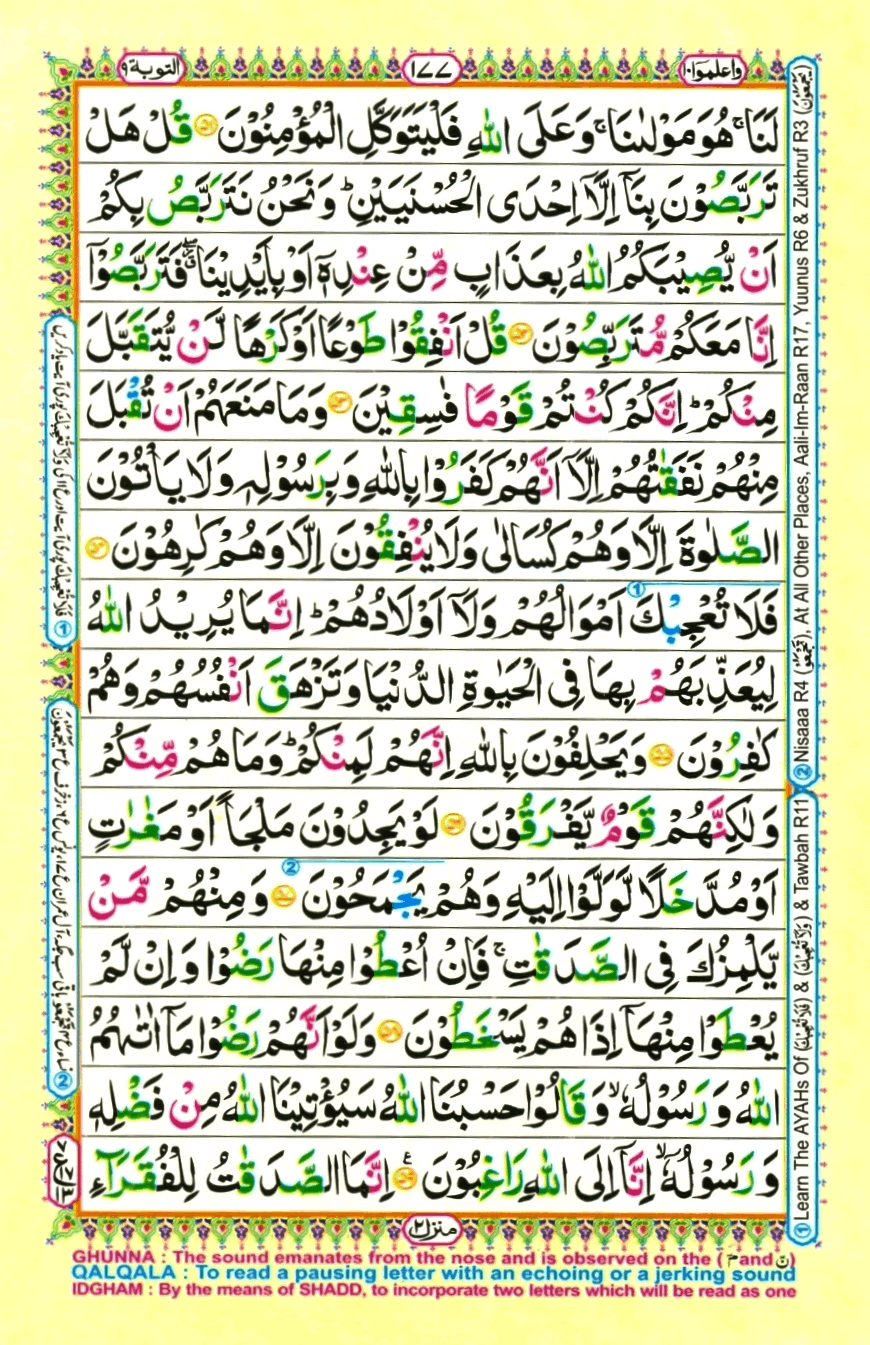 واعلموا ۱۰
۱۷۷
التوبة ۹
لَنَا ۚ هُوَ مَوْلٰىنَا ۚ وَعَلَى اللّٰهِ فَلْيَتَوَكَّلِ الْمُؤْمِنُوْنَ ۝۵۱ قُلْ هَلْ
تَرَبَّصُوْنَ بِنَاۤ اِلَّاۤ اِحْدَى الْحُسْنَيَيْنِ ؕ وَنَحْنُ نَتَرَبَّصُ بِكُمْ
اَنْ يُّصِيْبَكُمُ اللّٰهُ بِعَذَابٍ مِّنْ عِنْدِهٖۤ اَوْ بِاَيْدِيْنَا ۖؗ فَتَرَبَّصُوْۤا
اِنَّا مَعَكُمْ مُّتَرَبِّصُوْنَ ۝۵۲ قُلْ اَنْفِقُوْا طَوْعًا اَوْ كَرْهًا لَّنْ يُّتَقَبَّلَ
مِنْكُمْ ؕ اِنَّكُمْ كُنْتُمْ قَوْمًا فٰسِقِيْنَ ۝۵۳ وَمَا مَنَعَهُمْ اَنْ تُقْبَلَ
مِنْهُمْ نَفَقٰتُهُمْ اِلَّاۤ اَنَّهُمْ كَفَرُوْا بِاللّٰهِ وَبِرَسُوْلِهٖ وَلَا يَاْتُوْنَ
الصَّلٰوةَ اِلَّا وَهُمْ كُسَالٰى وَلَا يُنْفِقُوْنَ اِلَّا وَهُمْ كٰرِهُوْنَ ۝۵۴
فَلَا تُعْجِبْكَ ① اَمْوَالُهُمْ وَلَاۤ اَوْلَادُهُمْ ؕ اِنَّمَا يُرِيْدُ اللّٰهُ
لِيُعَذِّبَهُمْ بِهَا فِى الْحَيٰوةِ الدُّنْيَا وَتَزْهَقَ اَنْفُسُهُمْ وَهُمْ
كٰفِرُوْنَ ۝۵۵ وَيَحْلِفُوْنَ بِاللّٰهِ اِنَّهُمْ لَمِنْكُمْ ؕ وَمَا هُمْ مِّنْكُمْ
وَلٰكِنَّهُمْ قَوْمٌ يَّفْرَقُوْنَ ۝۵۶ لَوْ يَجِدُوْنَ مَلْجَاً اَوْ مَغٰرٰتٍ
اَوْ مُدَّخَلًا لَّوَلَّوْا اِلَيْهِ وَهُمْ يَجْمَحُوْنَ ② ۝۵۷ وَمِنْهُمْ مَّنْ
يَّلْمِزُكَ فِى الصَّدَقٰتِ ۚ فَاِنْ اُعْطُوْا مِنْهَا رَضُوْا وَاِنْ لَّمْ
يُعْطَوْا مِنْهَاۤ اِذَا هُمْ يَسْخَطُوْنَ ۝۵۸ وَلَوْ اَنَّهُمْ رَضُوْا مَاۤ اٰتٰىهُمُ
اللّٰهُ وَرَسُوْلُهٗ ۙ وَقَالُوْا حَسْبُنَا اللّٰهُ سَيُؤْتِيْنَا اللّٰهُ مِنْ فَضْلِهٖ
وَرَسُوْلُهٗۤ ۙ اِنَّاۤ اِلَى اللّٰهِ رٰغِبُوْنَ ۝۵۹ اِنَّمَا الصَّدَقٰتُ لِلْفُقَرَآءِ
منزل ۲
① Learn The AYAHs Of (فَلَا تُعْجِبْكَ) & (وَلَا تُعْجِبْكَ) & Tawbah R11
② Nisaaa R4 , At All Other Places, Aali-Im-Raan R17, Yuunus R6 & Zukhruf R3 (يَجْمَعُوْنَ)
GHUNNA : The sound emanates from the nose and is observed on the (م and ن)
QALQALA : To read a pausing letter with an echoing or a jerking sound
IDGHAM : By the means of SHADD, to incorporate two letters which will be read as one